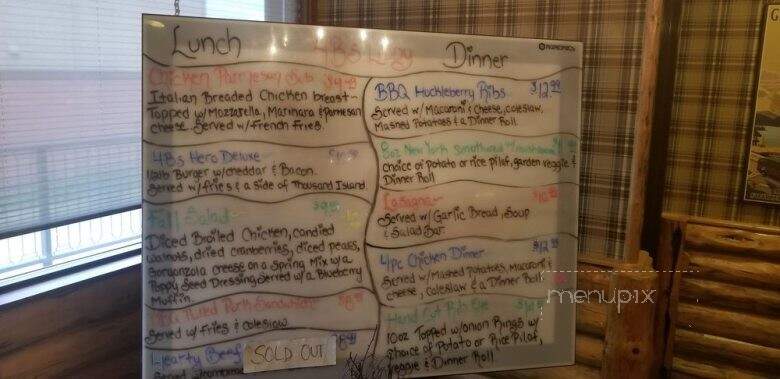 Lunch
4Bs
Chicken Parmesan Sub $9.49
Italian Breaded Chicken breast-
Topped w/Mozzarella, Marinara & Parmesan
cheese. Served w/French Fries.
4Bs Hero Deluxe
1/2lb Burger w/cheddar & Bacon.
Served w/Fries & a side of Thousand Island.
Fall Salad
Diced Broiled Chicken, candied
walnuts, dried cranberries, diced pears,
Gorgonzola creese on a Spring Mix w/a
Poppy Seed Dressing. Served w/a Blueberry
Muffin.
Pulled Pork Sandwich
Served w/Fries & coleslaw
Hearty Beef
SOLD OUT
Served
Dinner
BBQ Huckleberry Ribs $12.99
Served w/Macaroni & Cheese, coleslaw,
Mashed Potatoes & a Dinner Roll
8oz New York Smothered w/
choice of Potato or rice pilaf, garden veggie &
Dinner Roll
Lasagna
Served w/ Garlic Bread, Soup
& Salad Bar
4pc Chicken Dinner
Served w/Mashed Potatoes, Macaroni &
cheese, Coleslaw & a Dinner Roll
Hand Cut Rib Eye
10oz Topped w/onion Rings w/
choice of Potato or Rice Pilaf,
veggie & Dinner Roll
menupix